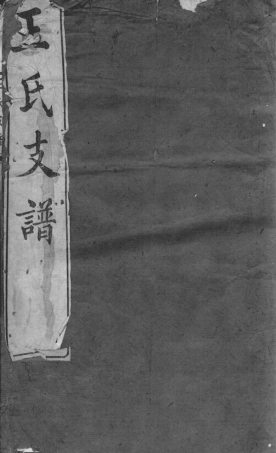 王氏支譜